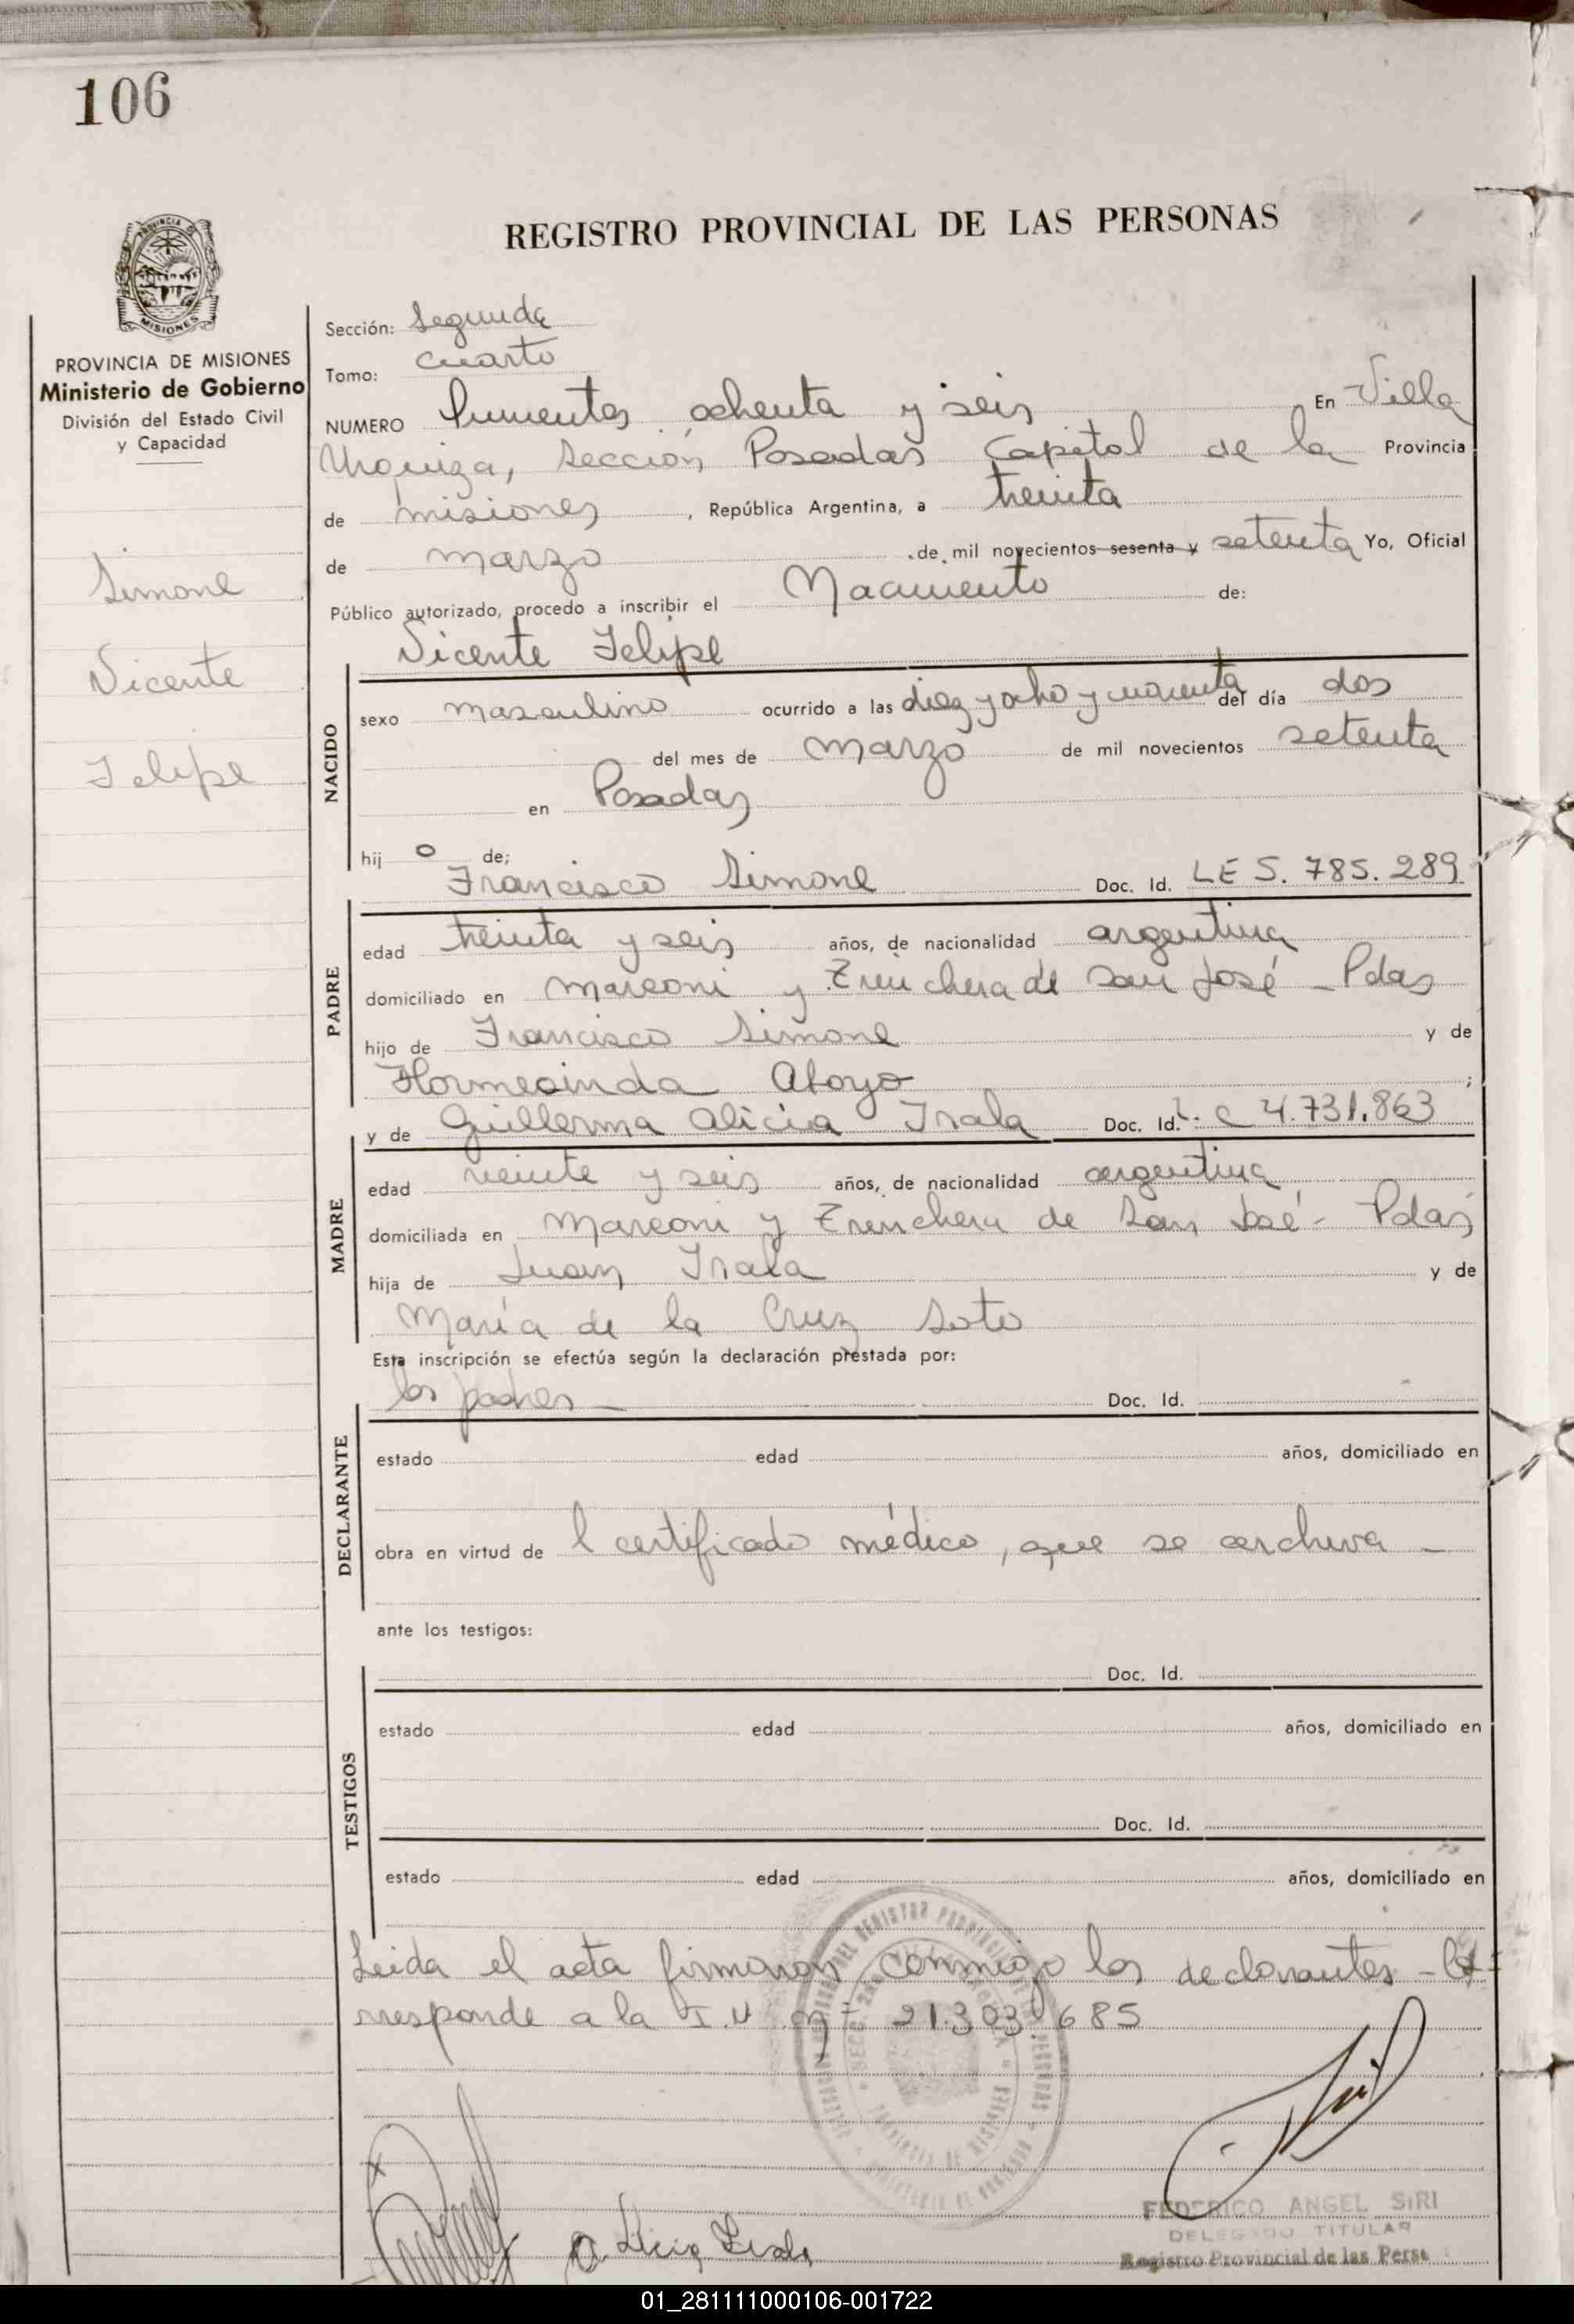 106
PROVINCIA DE MISIONES
Ministerio de Gobierno
División del Estado Civil
y Capacidad
Simone
Vicente
Felipe
REGISTRO PROVINCIAL DE LAS PERSONAS
Sección: Segunda
Tomo: cuarto
NUMERO ochenta y seis En Villa
Urquiza, Sección Posadas Capital de la Provincia
de misiones, República Argentina, a treinta
de marzo de mil novecientos sesenta y setenta Yo, Oficial
Público autorizado, procedo a inscribir el Nacimiento de:
Vicente Felipe
NACIDO
sexo masculino ocurrido a las diez y ocho y cuarenta del día dos
del mes de marzo de mil novecientos setenta
en Posadas
hij o de;
Francisco Simone Doc. Id. LE 5.785.289
PADRE
edad treinta y seis años, de nacionalidad argentina
domiciliado en Marconi y Trinchera de San José - Pdas
hijo de Francisco Simone y de
Hormecinda ;
y de Guillerma Alicia Irala Doc. Id. L.C 4.731.863
MADRE
edad veinte y seis años, de nacionalidad argentina
domiciliada en Marconi y Trinchera de San José - Pdas
hija de Juan Irala y de
María de la Cruz Soto
Esta inscripción se efectúa según la declaración prestada por:
los padres - Doc. Id.
DECLARANTE
estado edad años, domiciliado en
obra en virtud de l certificado médico, que se archiva -
ante los testigos:
Doc. Id.
TESTIGOS
estado edad años, domiciliado en
Doc. Id.
estado edad años, domiciliado en
Leida el acta firmaron conmigo los declarantes - Co=
rresponde a la I.N nº 21.303.685
FEDERICO ANGEL SIRI
DELEGADO TITULAR
Registro Provincial de las Pers
01_281111000106-001722